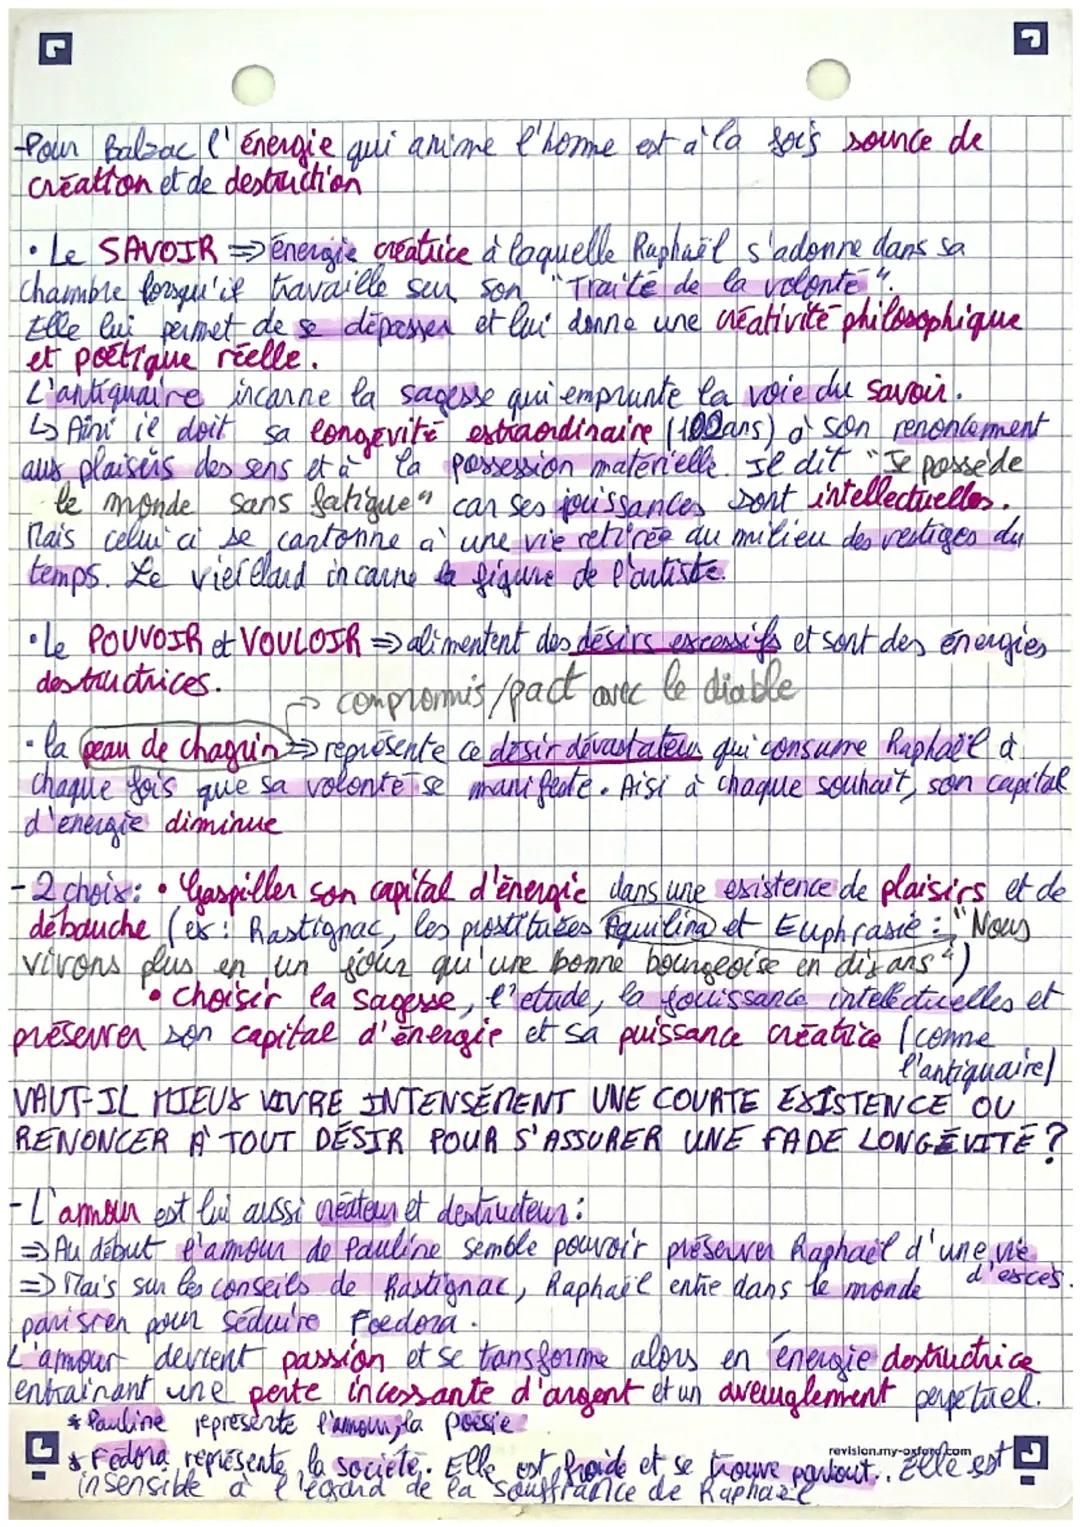 -Pour Balzac l'énergie qui anime l'homme est à la fois source de
création et de destruction
• Le SAVOIR => énergie créatrice à laquelle Raphaël s'adonne dans sa
chambre lorsqu'il travaille sur son "Traité de la volonté".
Elle lui permet de se dépasser et lui donne une créativité philosophique
et poétique réelle.
L'antiquaire incarne la sagesse qui emprunte la voie du savoir.
↳ Aini il doit sa longévité extraordinaire (100ans) à son renoncement
aux plaisirs des sens et à la possession matérielle. Il dit "Je possède
le monde sans fatigue" car ses jouissances sont intellectuelles.
Mais celui ci se cantonne à une vie retirée au milieu des vestiges du
temps. Le vieillard incarne la figure de l'artiste.
• Le POUVOIR et VOULOIR => alimentent des désirs excessifs et sont des énergies
destructrices.
→ compromis/pact avec le diable
- la peau de chagrin => représente ce désir dévastateur qui consume Raphaël à
chaque fois que sa volonté se manifeste. Aisi à chaque souhait, son capital
d'énergie diminue
- 2 choix: • Gaspiller son capital d'énergie dans une existence de plaisirs et de
débauche (ex: Rastignac, les prostituées Aquilina et Euphrasie : "Nous
vivons plus en un jour qu'une bonne bourgeoise en dix ans")
• Choisir la sagesse, l'étude, la jouissance intellectuelles et
préserver son capital d'énergie et sa puissance créatrice (comme
l'antiquaire)
VAUT-IL MIEUX VIVRE INTENSÉMENT UNE COURTE EXISTENCE OU
RENONCER À TOUT DÉSIR POUR S'ASSURER UNE FADE LONGÉVITÉ ?
- L'amour est lui aussi créateur et destructeur :
=> Au début l'amour de Pauline semble pouvoir préserver Raphaël d'une vie
d'excès.
=> Mais sur les conseils de Rastignac, Raphaël entre dans le monde
parisien pour séduire Foedora.
L'amour devient passion et se transforme alors en énergie destructrice
entraînant une perte incessante d'argent et un aveuglement perpétuel.
* Pauline représente l'amour, la poésie
revision.my-oxford.com
* Fédora représente la société. Elle est froide et se trouve partout. Elle est
insensible à l'égard de la souffrance de Raphaël